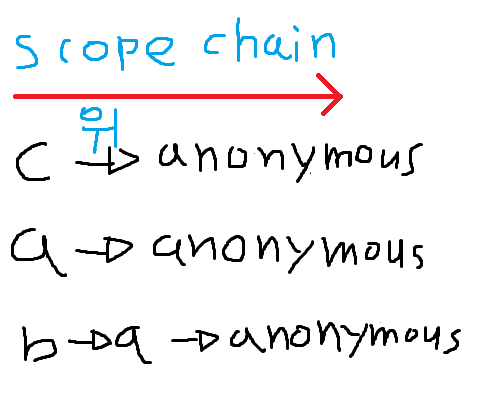 scope chain
위
c → anonymous
a → anonymous
b → a → anonymous